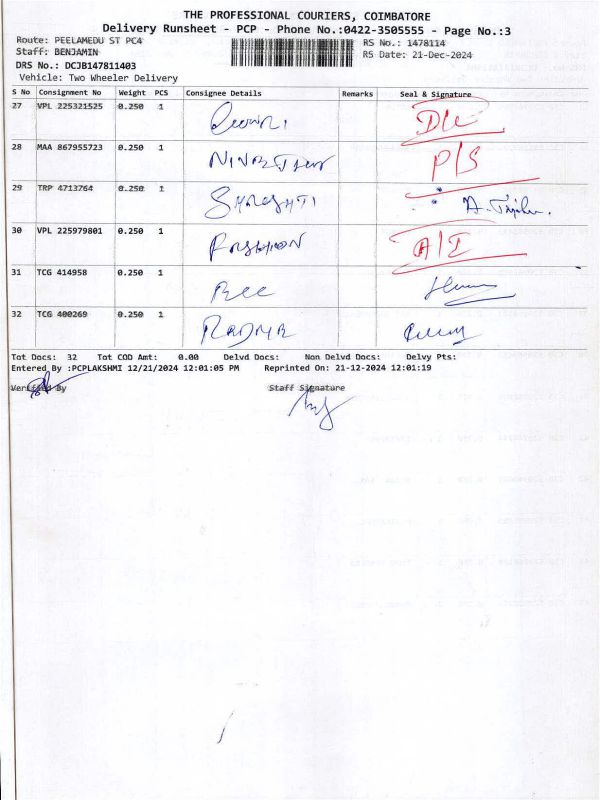 THE PROFESSIONAL COURIERS, COIMBATORE
Delivery Runsheet - PCP - Phone No.:0422-3505555 - Page No.:3
Route: PEELAMEDU ST PC4 RS No.: 1478114
Staff: BENJAMIN RS Date: 21-Dec-2024
DRS No.: DCJB147811403
Vehicle: Two Wheeler Delivery
S No Consignment No Weight PCS Consignee Details Remarks Seal & Signature
27 VPL 225321525 0.250 1
28 MAA 867955723 0.250 1 P/S
29 TRP 4713764 0.250 1
30 VPL 225979801 0.250 1 A/I
31 TCG 414958 0.250 1
32 TCG 400269 0.250 1
Tot Docs: 32 Tot COD Amt: 0.00 Delvd Docs: Non Delvd Docs: Delvy Pts:
Entered By :PCPLAKSHMI 12/21/2024 12:01:05 PM Reprinted On: 21-12-2024 12:01:19
Verified By Staff Signature